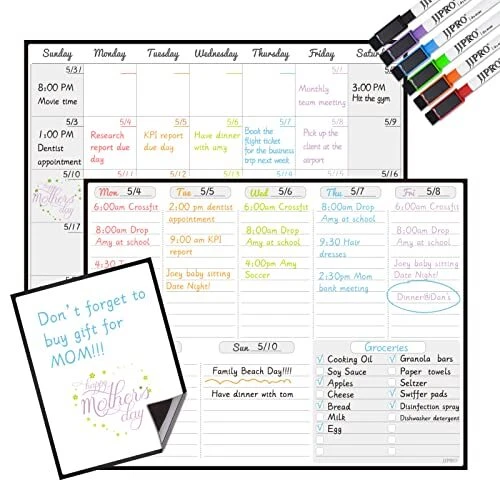 Sunday Monday Tuesday Wednesday Thursday Friday Satur
5/31 5/1
8:00 PM
Movie time
Monthly
team meeting
3:00 PM
Hit the gym
5/3 5/4 5/5 5/6 5/7 5/8
1:00 PM
Dentist
appointment
Research
report due
day
KPI report
due day
Have dinner
with amy
Book the
flight ticket
for the business
trip next week
Pick up the
client at the
airport
5/10
happy
Mother's
day
5/17
JJPRO
JJPRO
JJPRO
JJPRO
JJPRO
JJPRO
Mon 5/4 Tue 5/5 Wed 5/6 Thu 5/7 Fri 5/8
6:00am Crossfit
8:00am Drop
Amy at school
2:00 pm dentist
appointment
9:00 am KPI
report
Joey baby sitting
Date Night!
6:00am Crossfit
8:00am Drop
Amy at school
4:00pm Amy
Soccer
8:00am Drop
Amy at school
9:30 Hair
dresses
2:30pm Mom
bank meeting
6:00am Crossfit
8:00am Drop
Amy at school
Joey baby sitting
Date Night!
Dinner@Dan's
5/9
Sun 5/10
Family Beach Day!!!!
Have dinner with tom
Groceries
Cooking Oil
Soy Sauce
Apples
Cheese
Bread
Milk
Egg
Granola bars
Paper towels
Seltzer
Swiffer pads
Disinfection spray
Dishwasher detergent
JJPRO
Don't forget to
buy gift for
MOM!!!
happy
Mother's
day